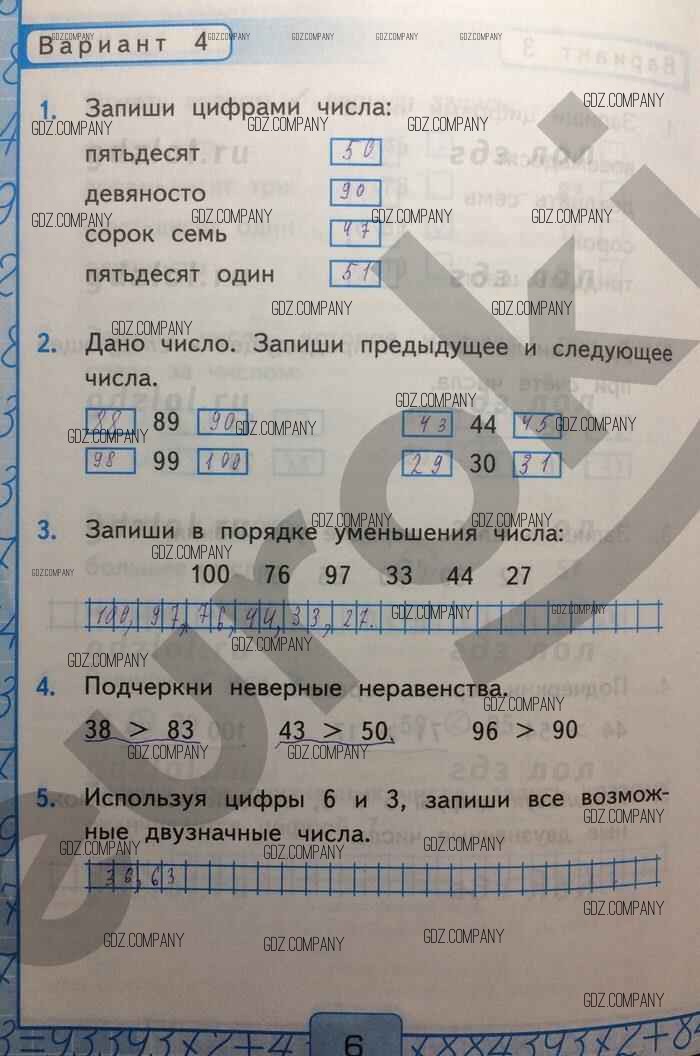 Вариант 4
1. Запиши цифрами числа:
пятьдесят 50
девяносто 90
сорок семь 47
пятьдесят один 51
2. Дано число. Запиши предыдущее и следующее
числа.
88 89 90 43 44 45
98 99 100 29 30 31
3. Запиши в порядке уменьшения числа:
100 76 97 33 44 27
100, 97, 76, 44, 33, 27.
4. Подчеркни неверные неравенства.
38 > 83 43 > 50 96 > 90
5. Используя цифры 6 и 3, запиши все возмож-
ные двузначные числа.
36, 63
6
GDZ.COMPANY
euroki